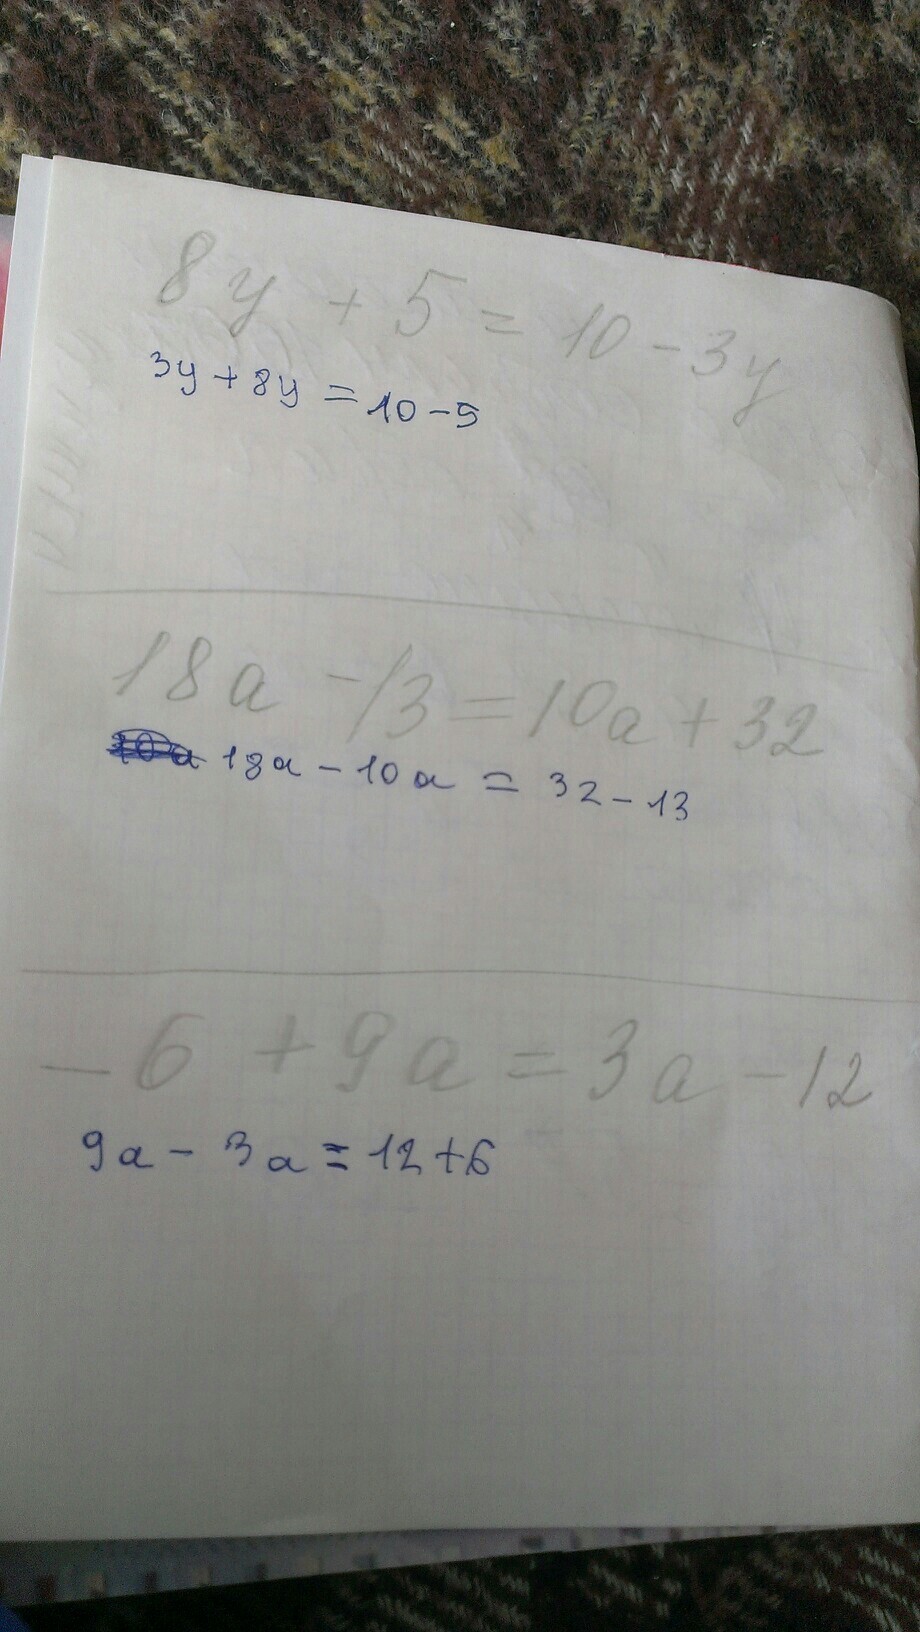 8y + 5 = 10 - 3y
3y + 8y = 10 - 5
18a - 13 = 10a + 32
18a - 10a = 32 - 13
- 6 + 9a = 3a - 12
9a - 3a = 12 + 6